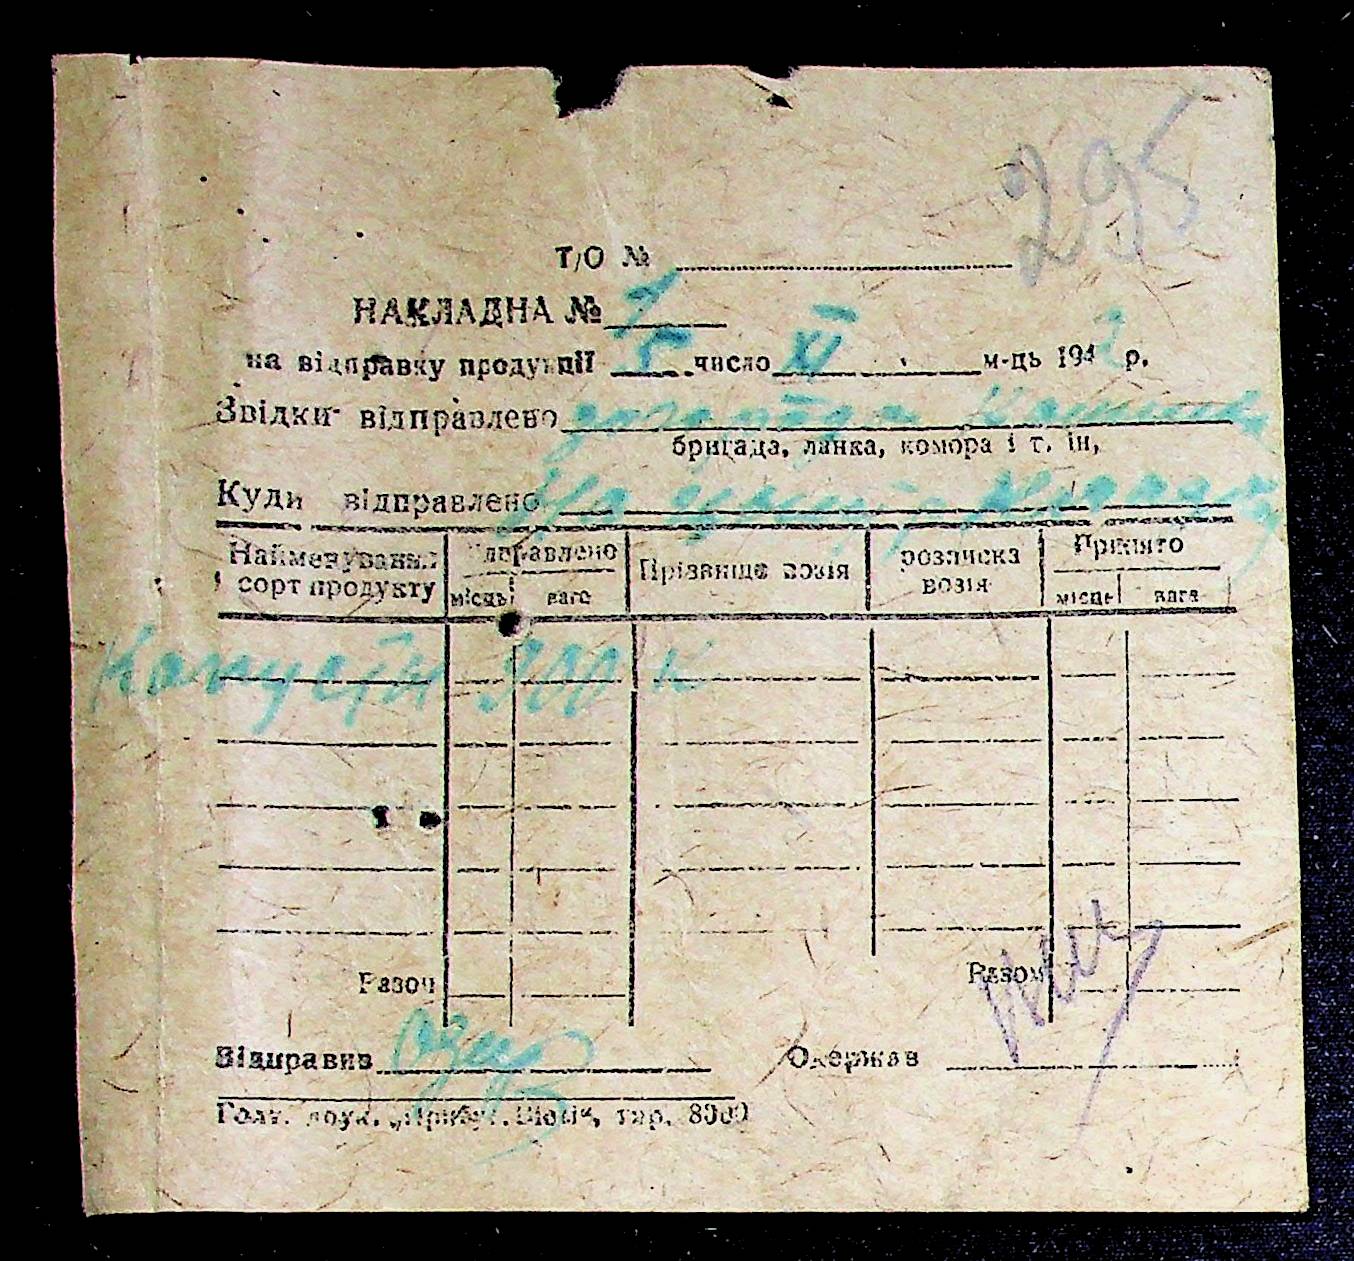 295
Т/О №
НАКЛАДНА № 1
на відправку продукції 5 число XI м-ць 1942 р.
Звідки відправлено
бригада, ланка, комора і т. ін,
Куди відправлено На
Найменування сорт продукту
Відправлено
місць
вага
Прізвище возія
розписка возія
Прийнято
місць
вага
Капусти 900 к
Разом
Разом
Відправив
Одержав
Голт. друк. „Прибуг. Вісті“, тир. 8000